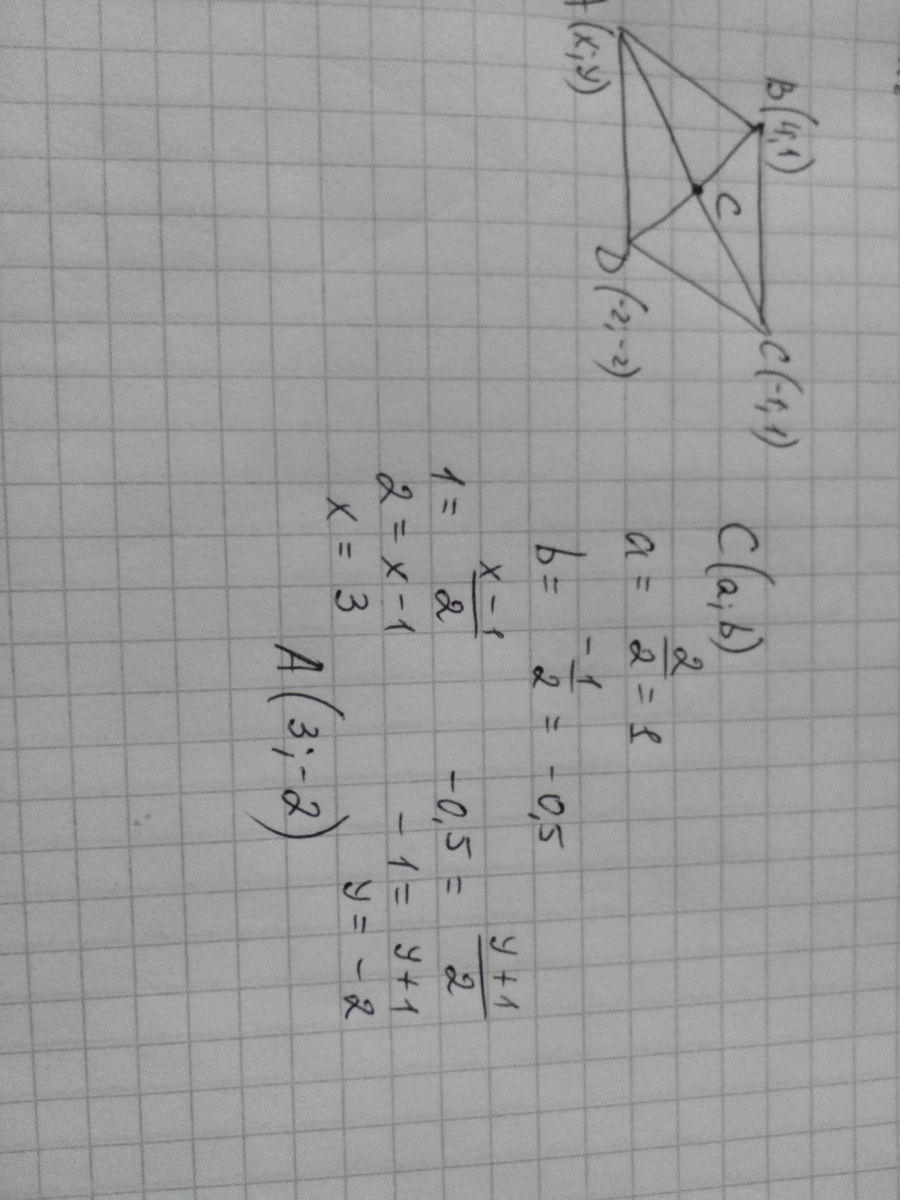 B(4;1)
C(-1;1)
C
A(x;y)
D(-2;-2)
C(a;b)
a = 2/2 = 1
b = -1/2 = -0,5
1 = x-1/2
2 = x-1
x = 3
-0,5 = y+1/2
-1 = y+1
y = -2
A(3;-2)